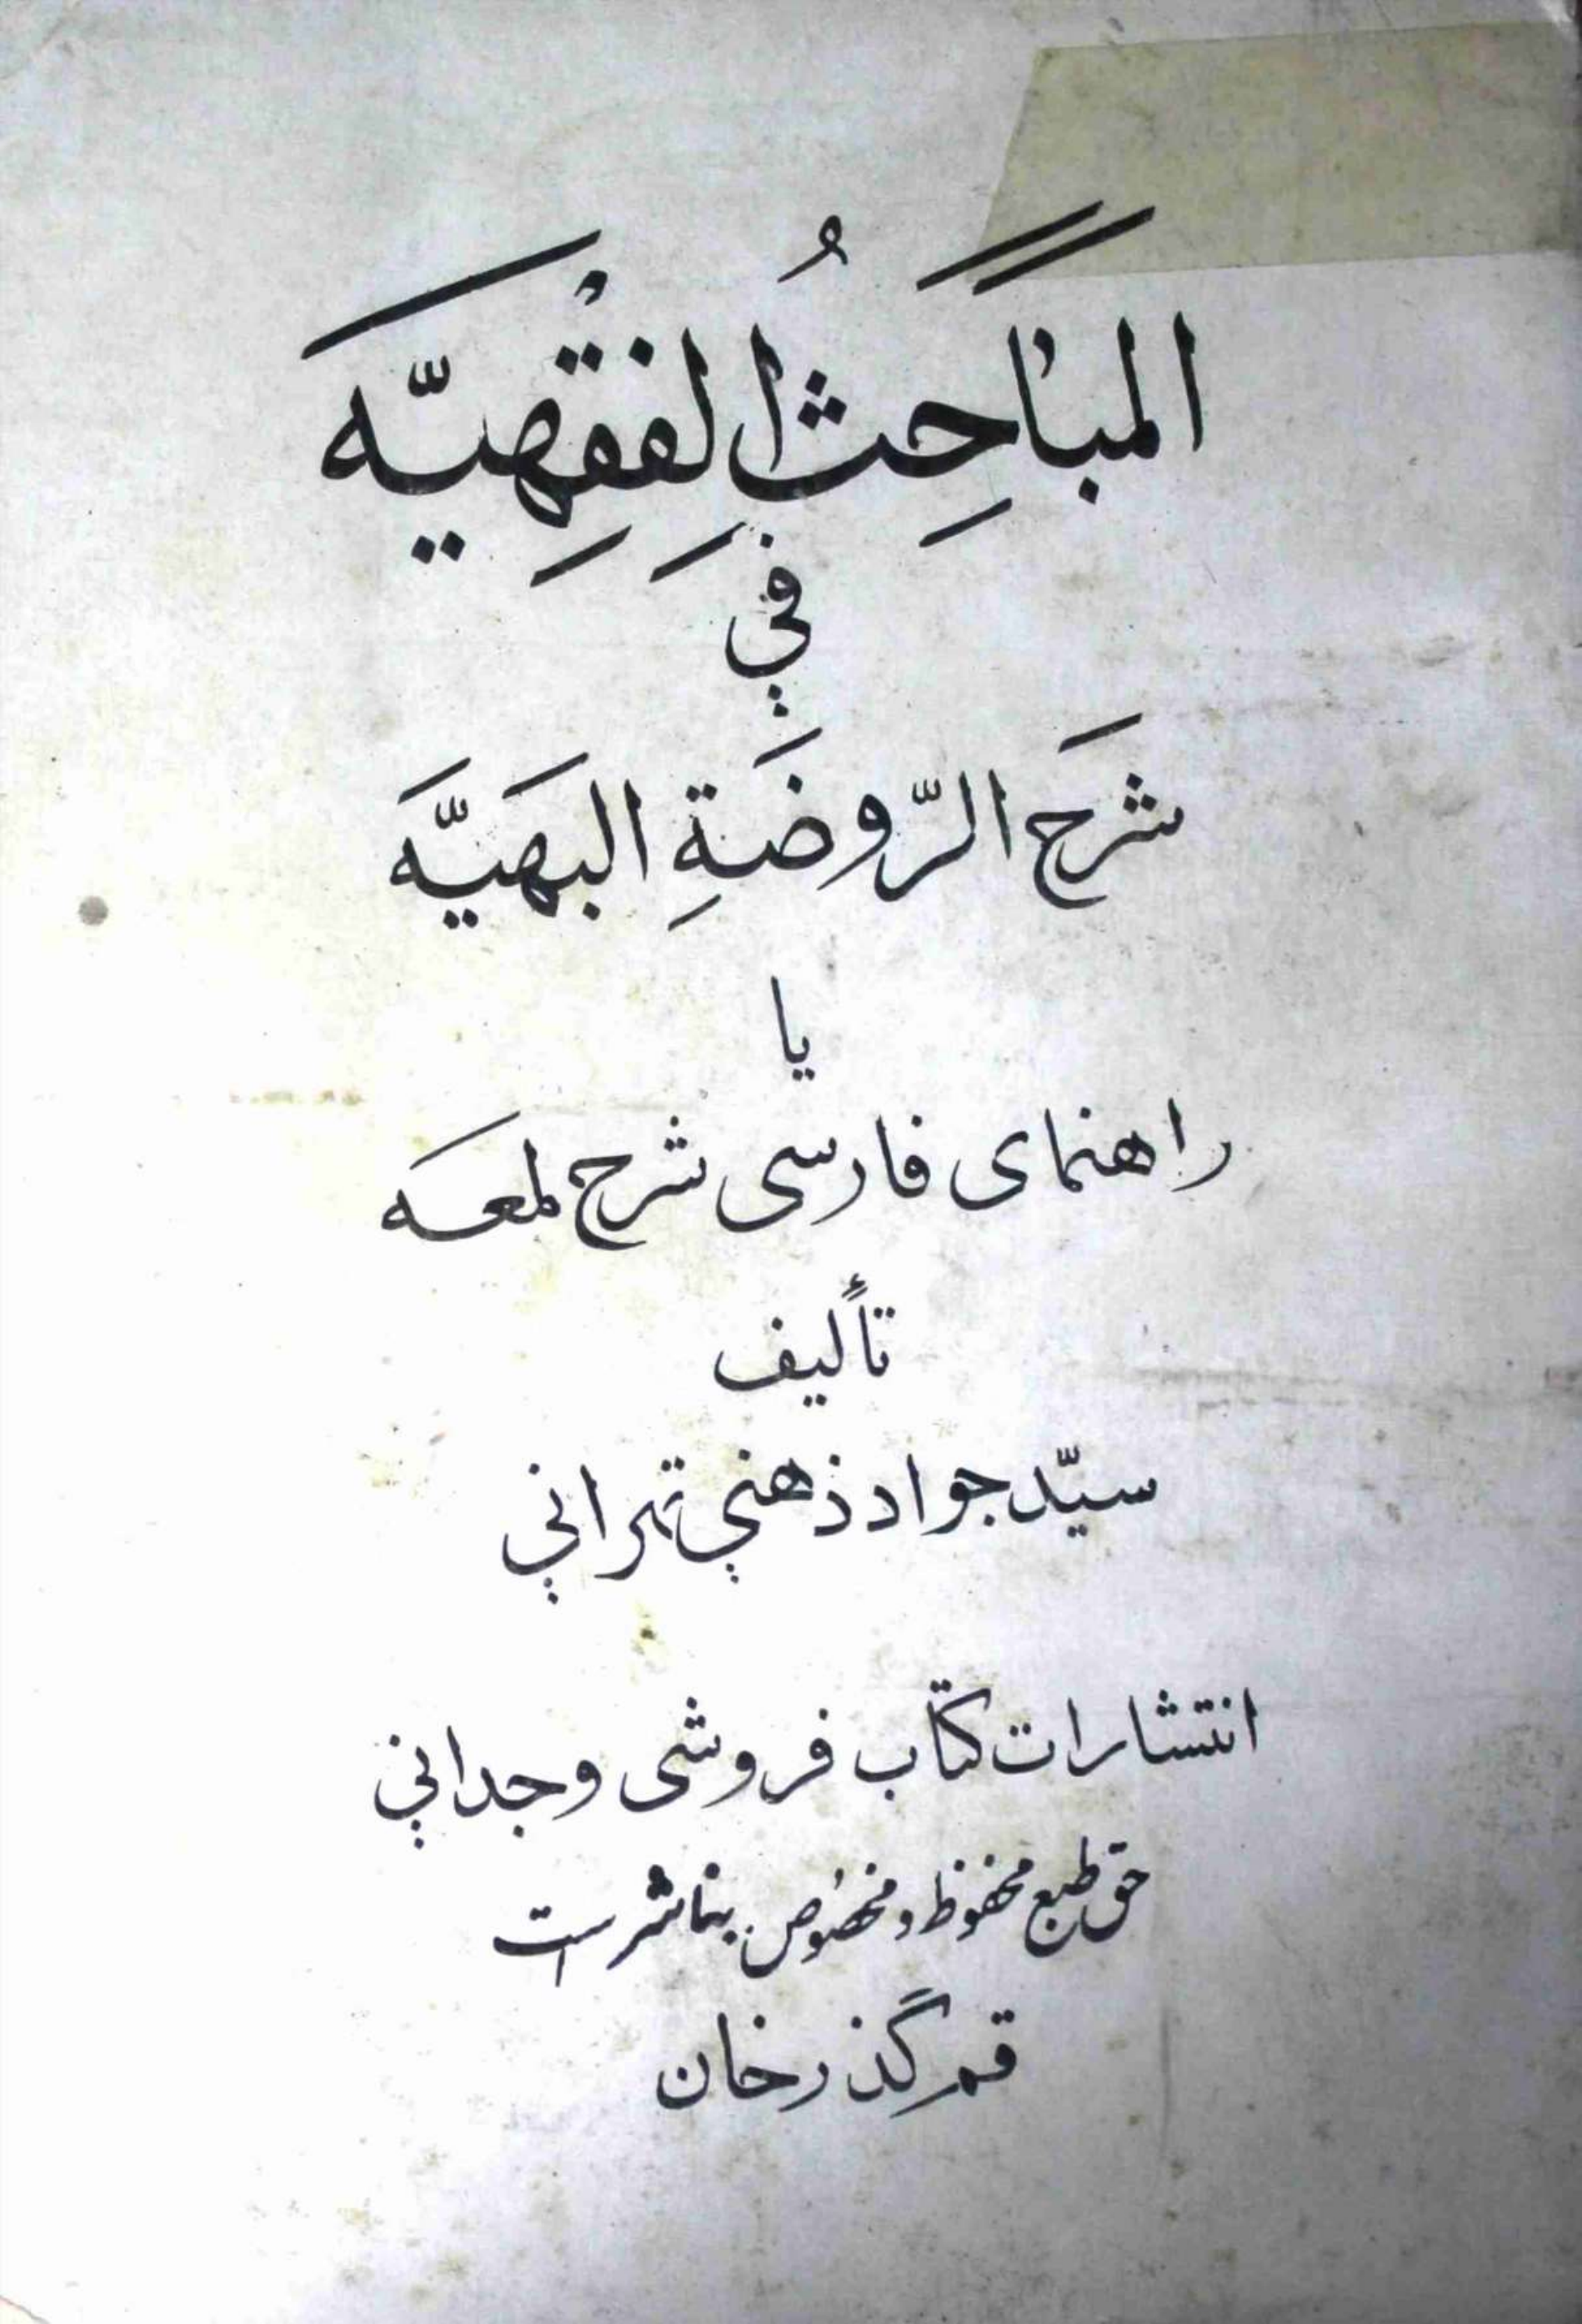 المبَاحِثُ الفِقْهِيَّه
في
شَرح الرّوضَةِ البَهيَّه
يا
راهنمای فارسی شرح لمعَه
تأليف
سيّد جواد ذهني تهراني
انتشارات كتاب فروشی وجداني
حق طبع محفوظ و مخصوص بناشر است
قم گذرخان